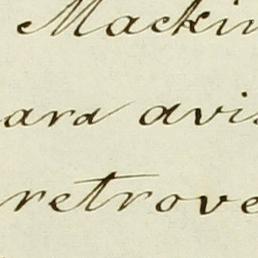 Mackin
ara avis
retrove